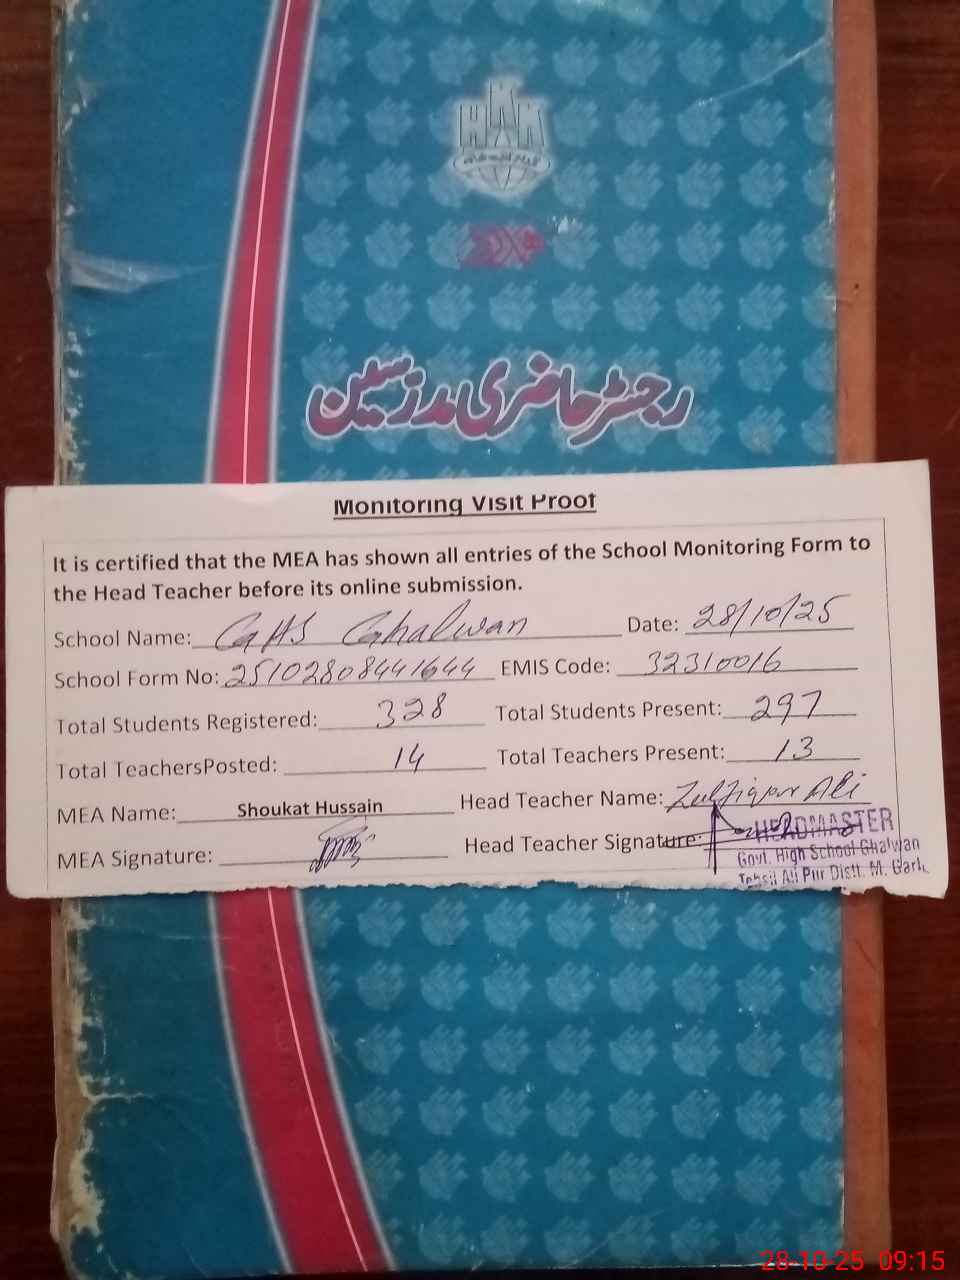 رجسٹر حاضری مدرسین
Monitoring Visit Proof
It is certified that the MEA has shown all entries of the School Monitoring Form to
the Head Teacher before its online submission.
School Name: GHS Ghalwan Date: 28/10/25
School Form No: 25102808441644 EMIS Code: 32310016
Total Students Registered: 328 Total Students Present: 297
Total TeachersPosted: 14 Total Teachers Present: 13
MEA Name: Shoukat Hussain Head Teacher Name: Zulfiqar Ali
MEA Signature: Head Teacher Signature:
HEADMASTER
Govt. High School Ghalwan
Tehsil Ali Pur Distt. M. Garh
28-10-25 09:15